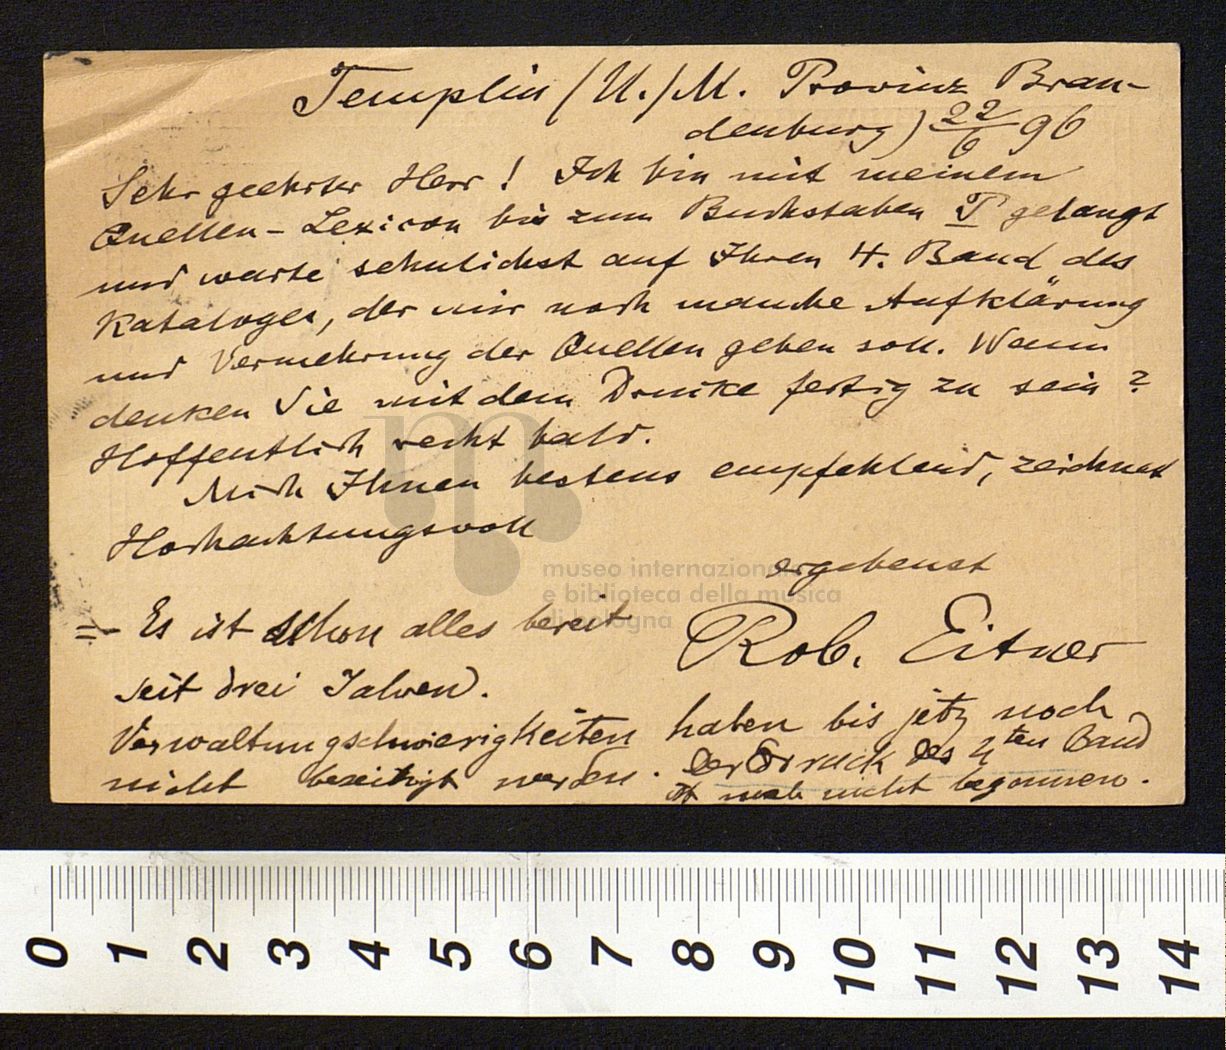 Templin (U./M. Provinz Bran-
denburg) 22/6 96
Sehr geehrter Herr! Ich bin mit meinem
Quellen-Lexicon bis zum Buchstaben T gelangt
und warte sehnlichst auf Ihren 4. Band des
Kataloges, der mir noch manche Aufklärung
und Vermehrung der Quellen geben soll. Wann
denken Sie mit dem Drucke fertig zu sein?
Hoffentlich recht bald.
Mich Ihnen bestens empfehlend, zeichnet
Hochachtungsvoll
ergebenst
Rob. Eitner
Es ist schon alles bereit
seit drei Jahren.
Verwaltungschwierigkeiten haben bis jetz noch
nicht beseitigt werden. Der Druck des 4ten Band
ist noch nicht begonnen.
museo internazionale
e biblioteca della musica
di bologna
0 1 2 3 4 5 6 7 8 9 10 11 12 13 14